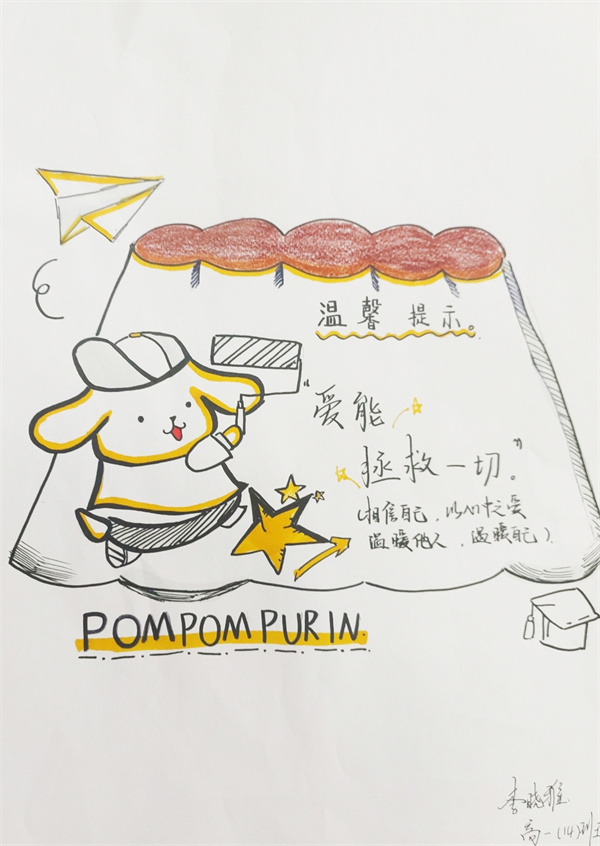 温馨提示。
"爱能
拯救一切。"
(相信自己，以心之爱
温暖他人，温暖自己)
POMPOMPURIN.
李晓雅
高一(14)班